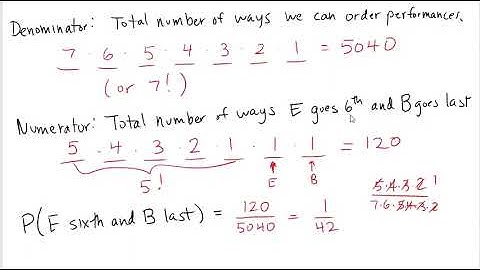 Denominator: Total number of ways we can order performances.
7 · 6 · 5 · 4 · 3 · 2 · 1 = 5040
(or 7!)
Numerator: Total number of ways E goes 6th and B goes last
5 · 4 · 3 · 2 · 1 · 1 · 1 = 120
5!
E B
5·4·3·2 1
7·6·5·4·3·2
P(E sixth and B last) = 120/5040 = 1/42